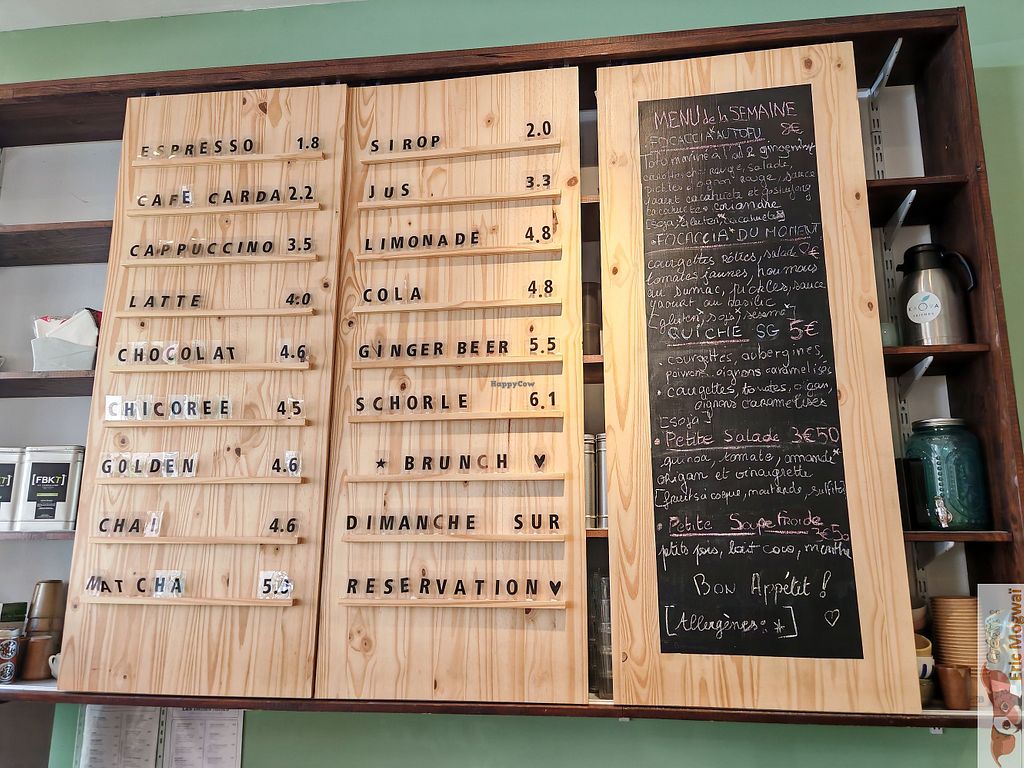 ESPRESSO 1.8
CAFE CARDA 2.2
CAPPUCCINO 3.5
LATTE 4.0
CHOCOLAT 4.6
CHICOREE 4.5
GOLDEN 4.6
CHAI 4.6
MATCHA
SIROP 2.0
JUS 3.3
LIMONADE 4.8
COLA 4.8
GINGER BEER 5.5
SCHORLE 6.1
★ BRUNCH ♥
DIMANCHE SUR
RESERVATION ♥
MENU de la SEMAINE
FOCACCIA AUTOFU 8€
gingembre
rouge, salade,
pickles oignon rouge, sauce
yaourt cacahuète
coriandre
FOCACCIA DU MOMENT
courgettes rôties, salade
tomates jaunes, houmous
au sumac, pickles, sauce
yaourt au basilic
[gluten, soja, sésame]
QUICHE SG 5€
. courgettes, aubergines,
poivrons, oignons caramélisés
. courgettes, tomates, origan,
oignons caramélisés
[soja]
• Petite Salade 3€50
quinoa, tomate, amande*
origan et vinaigrette
[fruits à coque, moutarde, sulfites]
• Petite Soupe froide
ptits pois, lait coco, menthe
Bon Appétit !
[Allergènes: *]
FBKT
HappyCow
Eric Mogwaï